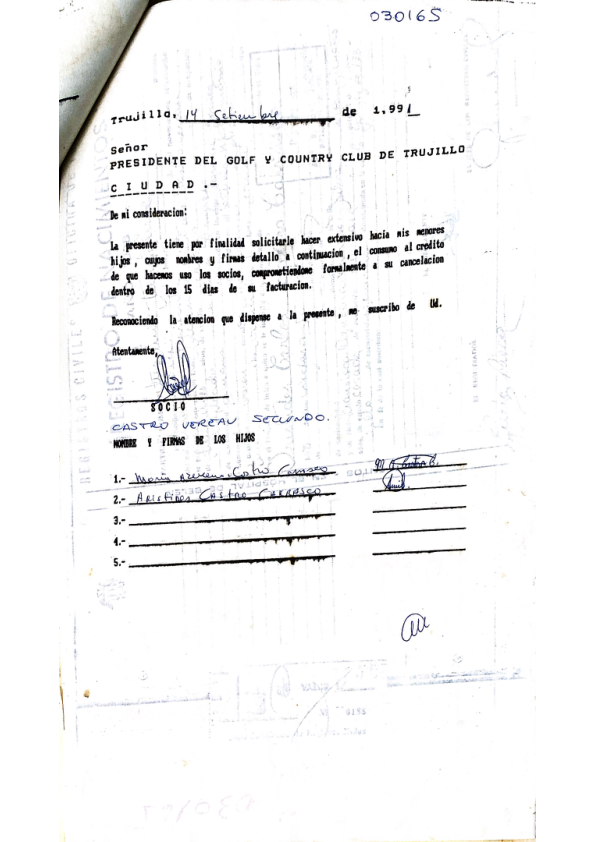 030165
Trujillo, 14 Setiembre de 1,991
Señor
PRESIDENTE DEL GOLF Y COUNTRY CLUB DE TRUJILLO
C I U D A D .-
De mi consideracion:
La presente tiene por finalidad solicitarle hacer extensivo hacia mis menores
hijos , cuyos nombres y firmas detallo a continuacion , el consumo al credito
de que hacemos uso los socios, comprometiendome formalmente a su cancelacion
dentro de los 15 dias de su facturacion.
Reconociendo la atencion que dispense a la presente , me suscribo de Ud.
Atentamente,
SOCIO
CASTRO VEREAU SEGUNDO.
NOMBRE Y FIRMAS DE LOS HIJOS
1.- Maria Castro Carrasco
2.- Aristides CASTRO CARRASCO
3.-
4.-
5.-